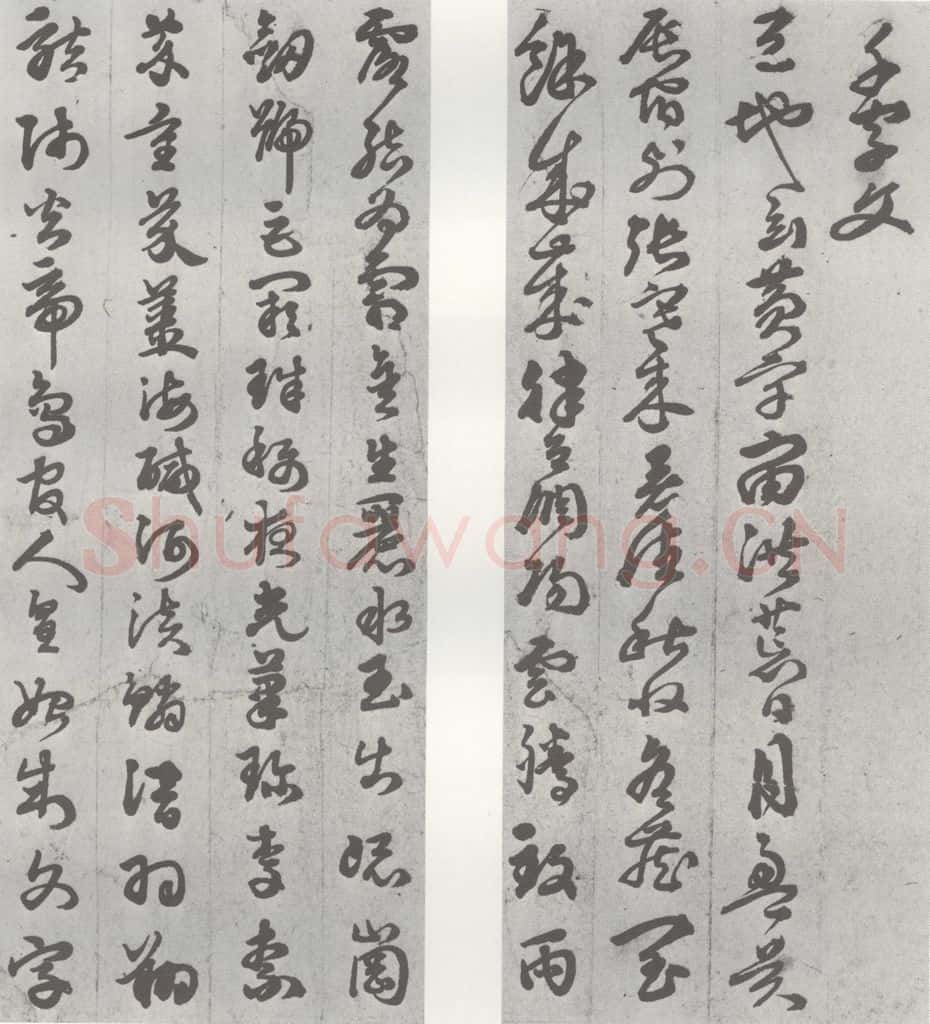 千字文
天地玄黃宇宙洪荒日月盈昃
辰宿列張寒來暑往秋收冬藏閏
餘成歲律呂調陽雲騰致雨
露結為霜金生麗水玉出崐崗
劒號巨闕珠稱夜光菓珍李柰
菜重芥薑海醎河淡鱗潛羽翔
龍師火帝鳥官人皇始制文字
Shufawang.CN